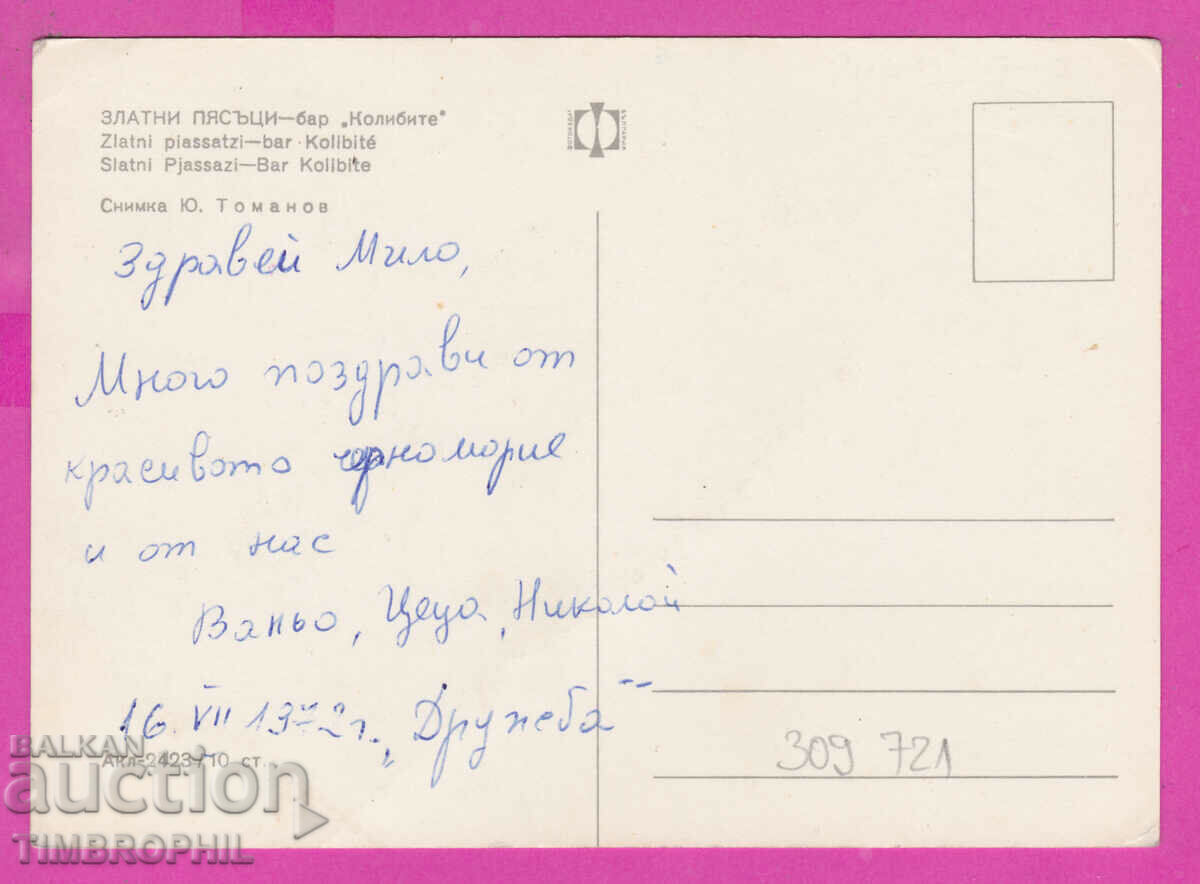 ЗЛАТНИ ПЯСЪЦИ—бар „Колибите"
Zlatni piassatzi—bar·Kolibité
Slatni Pjassazi—Bar Kolibite
Снимка Ю. Томанов
ФОТОИЗДАТ
БЪЛГАРИЯ
Здравей Мило,
Много поздрави от
красивото черноморие
и от нас
Ваньо, Цеца, Николай
16 VII 1972г., „Дружба"
Акл-2423/10 ст.
309 721
BALKAN
auction
TIMBROPHIL